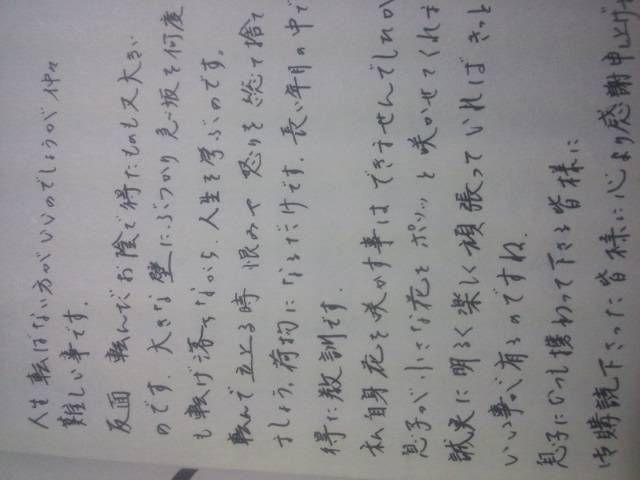 人生 転ばない方がいいのでしょうが 仲々
難しい事です。
反面 転んだお陰で得たものも又大きい
のです。大きな壁にぶつかり 急坂を何度
も転げ落ちながら、人生を学ぶのです。
転んで立上る時 恨みや 怒りを総て捨て
ましょう。荷物になるだけです。長い年月の中で
得た教訓です。
私自身 花を咲かす事は できませんでしたが
息子が小さな花を ポツッと 咲かせてくれま
誠実に 明るく楽しく頑張っていれば きっと
いい事が有るのですね。
息子にいつも携わって下さる皆様に
御購読下さった皆様に心より感謝申し上げ